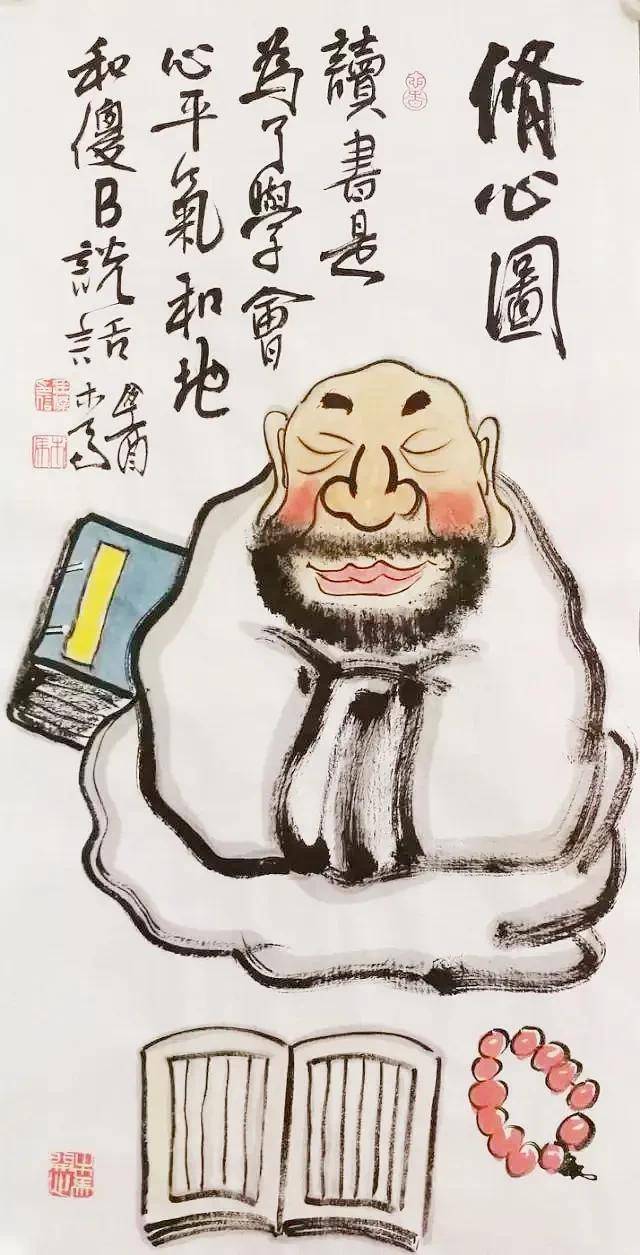 脩心圖
讀書是
為了學會
心平氣和地
和傻B説話